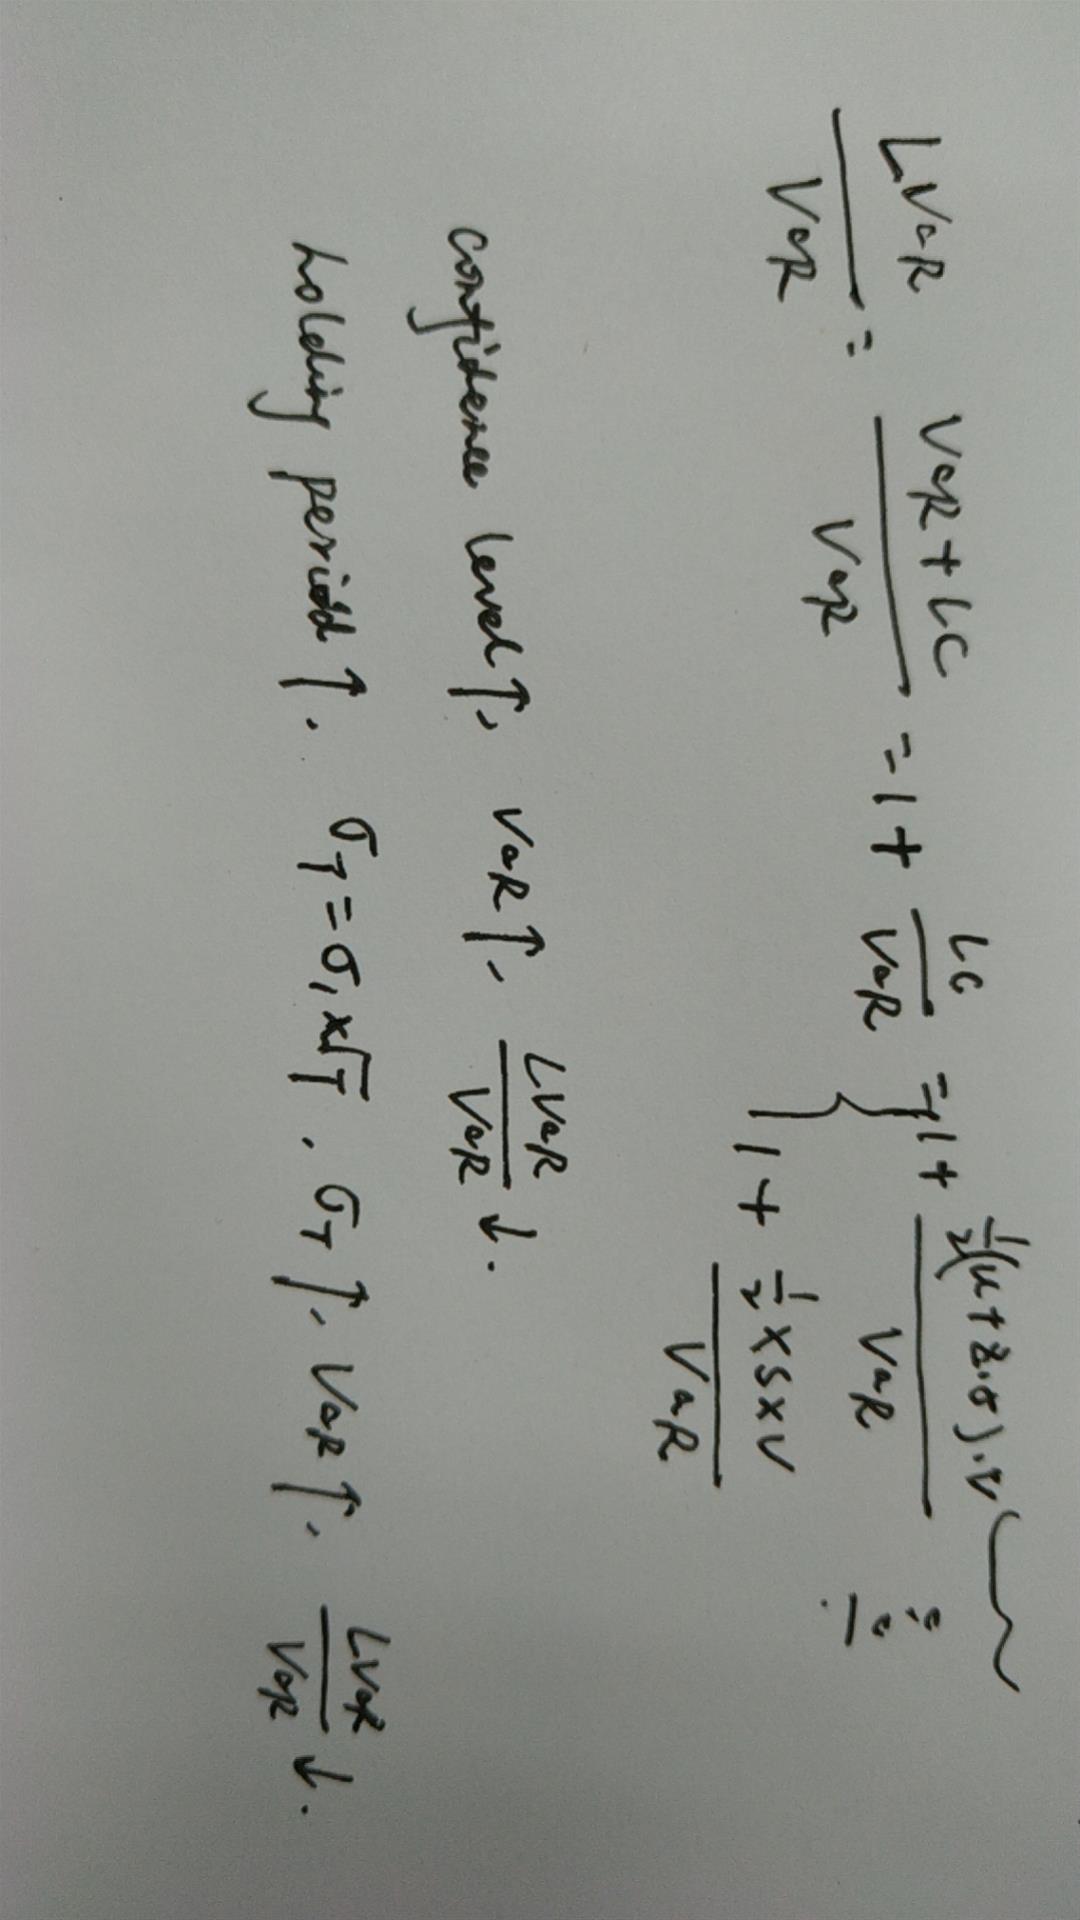 LVaR/VaR = (VaR+LC)/VaR = 1 + LC/VaR = { 1 + ½(u+z·σ)·v/VaR
1 + ½×s×v/VaR
confidence level↑, VaR↑, LVaR/VaR ↓.
holding period↑. σT=σ1×√T, σT↑, VaR↑, LVaR/VaR ↓.